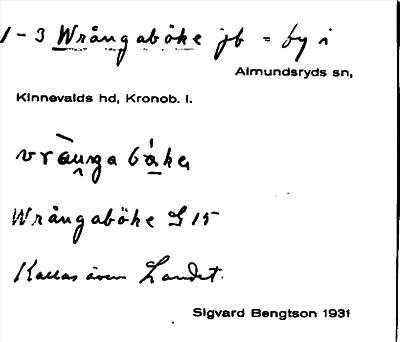 1-3 Wrångaböke jb = by i
Almundsryds sn,
Kinnevalds hd, Kronob. l.
Wrångaböke G 15
Kallas även Landet.
Sigvard Bengtson 1931